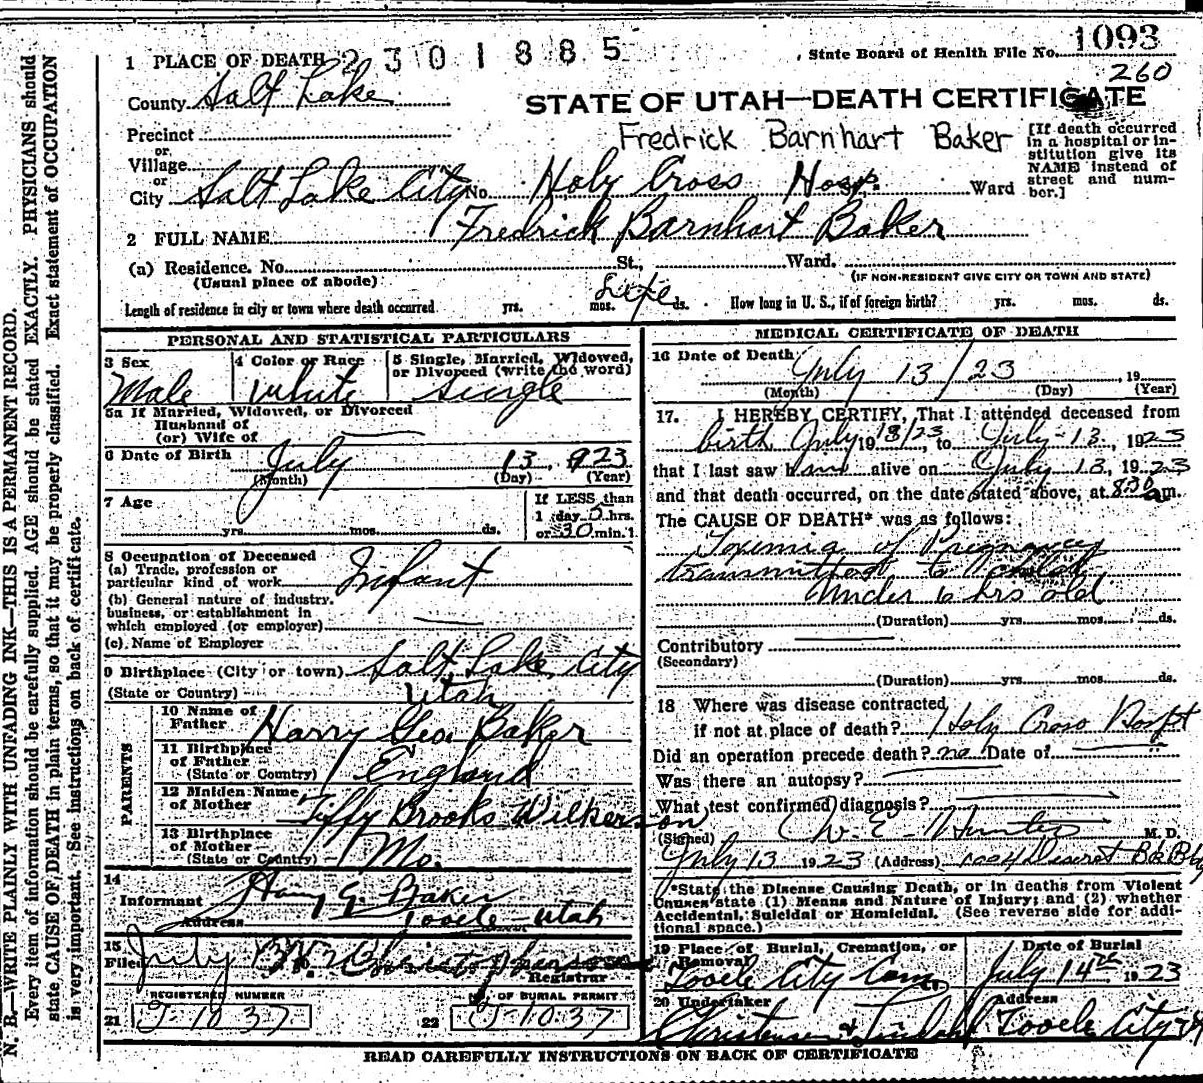 2301885
State Board of Health File No. 1093
260
1 PLACE OF DEATH
County Salt Lake
STATE OF UTAH—DEATH CERTIFICATE
Precinct
or
Village
or
City Salt Lake City No. Holy Cross Hosp. Ward
Fredrick Barnhart Baker
[If death occurred in a hospital or institution give its NAME instead of street and number.]
2 FULL NAME Fredrick Barnhart Baker
(a) Residence. No. St., Ward.
(Usual place of abode) (IF NON-RESIDENT GIVE CITY OR TOWN AND STATE)
Length of residence in city or town where death occurred yrs. mos. Life ds. How long in U. S., if of foreign birth? yrs. mos. ds.
PERSONAL AND STATISTICAL PARTICULARS
3 Sex Male
4 Color or Race White
5 Single, Married, Widowed, or Divorced (write the word) Single
5a If Married, Widowed, or Divorced
Husband of
(or) Wife of
6 Date of Birth July 13, 923
(Month) (Day) (Year)
7 Age yrs. mos. ds.
If LESS than
1 day 5 hrs.
or 30 min.
8 Occupation of Deceased
(a) Trade, profession or particular kind of work Infant
(b) General nature of industry, business, or establishment in which employed (or employer)
(c) Name of Employer
9 Birthplace (City or town) Salt Lake City
(State or Country) Utah
PARENTS
10 Name of Father Harry Geo. Baker
11 Birthplace of Father (State or Country) England
12 Maiden Name of Mother Tiffy Brooks Wilkerson
13 Birthplace of Mother (State or Country) Mo.
14
Informant Harry G. Baker
Address Tooele - Utah
15
Filed July
Registrar
REGISTERED NUMBER
21 J-1037
NO. OF BURIAL PERMIT
22 J-1037
MEDICAL CERTIFICATE OF DEATH
16 Date of Death July 13/23, 19
(Month) (Day) (Year)
17. I HEREBY CERTIFY, That I attended deceased from
birth July 13/23 to July - 13, 1923
that I last saw him alive on July 13, 1923
and that death occurred, on the date stated above, at 830 am.
The CAUSE OF DEATH* was as follows:
Toxemia of Pregnancy
transmitted to child
Under 6 hrs old
(Duration) yrs. mos. ds.
Contributory
(Secondary)
(Duration) yrs. mos. ds.
18 Where was disease contracted
if not at place of death? Holy Cross Hospt
Did an operation precede death? no Date of
Was there an autopsy?
What test confirmed diagnosis?
(Signed) W. E. Hunter M. D.
July 13 1923 (Address) 1004 Deseret Bk Bldg
*State the Disease Causing Death, or in deaths from Violent Causes state (1) Means and Nature of Injury; and (2) whether Accidental, Suicidal or Homicidal. (See reverse side for additional space.)
19 Place of Burial, Cremation, or Removal Tooele City Cem.
Date of Burial July 14th 1923
20 Undertaker Christensen &
Address Tooele City
READ CAREFULLY INSTRUCTIONS ON BACK OF CERTIFICATE
N. B.—WRITE PLAINLY WITH UNFADING INK—THIS IS A PERMANENT RECORD.
Every item of information should be carefully supplied. AGE should be stated EXACTLY. PHYSICIANS should
state CAUSE OF DEATH in plain terms, so that it may be properly classified. Exact statement of OCCUPATION
is very important. See instructions on back of certificate.